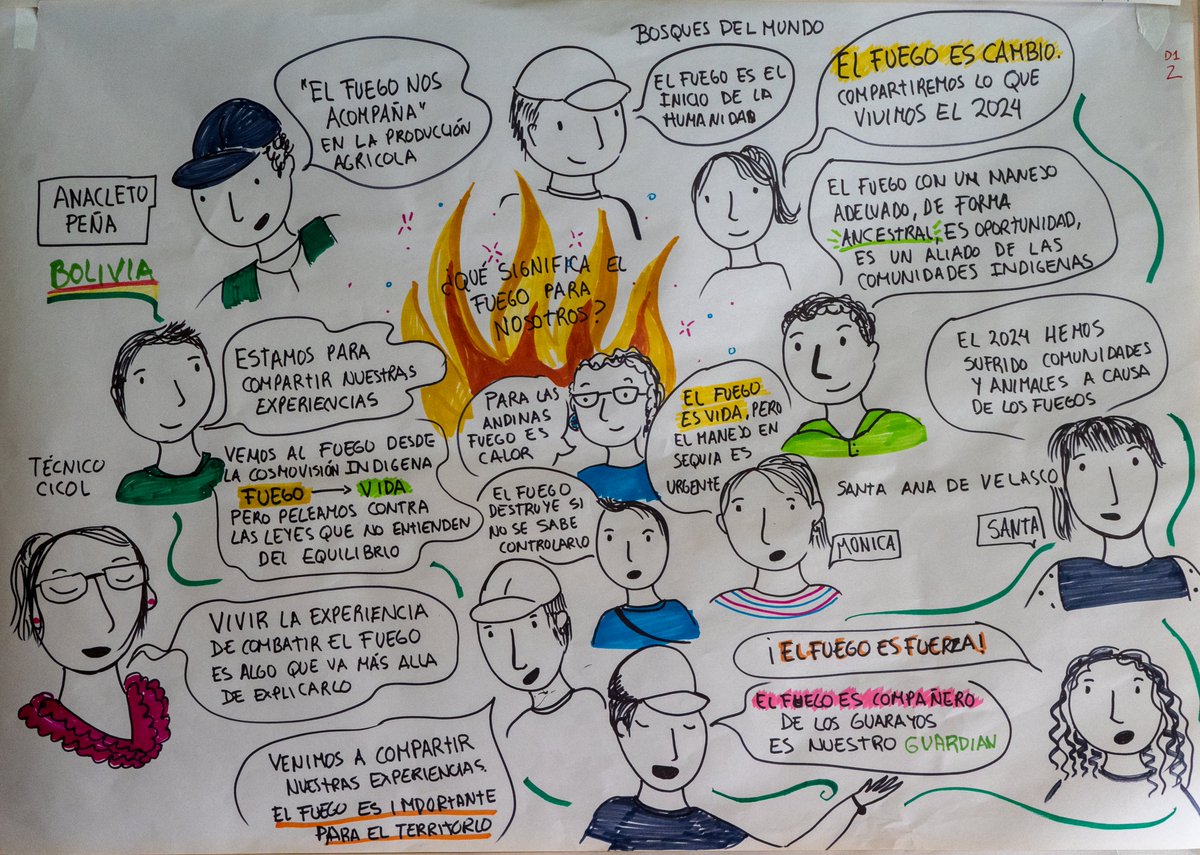 BOSQUES DEL MUNDO
D1
2
"EL FUEGO NOS
ACOMPAÑA"
EN LA PRODUCCIÓN
AGRICOLA
EL FUEGO ES EL
INICIO DE LA
HUMANIDAD
EL FUEGO ES CAMBIO.
COMPARTIREMOS LO QUE
VIVIMOS EL 2024
ANACLETO
PEÑA
BOLIVIA
EL FUEGO CON UN MANEJO
ADECUADO, DE FORMA
ANCESTRAL, ES OPORTUNIDAD,
ES UN ALIADO DE LAS
COMUNIDADES INDIGENAS
¿QUÉ SIGNIFICA EL
FUEGO PARA
NOSOTROS?
ESTAMOS PARA
COMPARTIR NUESTRAS
EXPERIENCIAS
EL 2024 HEMOS
SUFRIDO COMUNIDADES
Y ANIMALES A CAUSA
DE LOS FUEGOS
PARA LAS
ANDINAS
FUEGO ES
CALOR
EL FUEGO
ES VIDA, PERO
EL MANEJO EN
SEQUIA ES
URGENTE
TÉCNICO
CICOL
VEMOS AL FUEGO DESDE
LA COSMOVISIÓN INDIGENA
FUEGO → VIDA
PERO PELEAMOS CONTRA
LAS LEYES QUE NO ENTIENDEN
DEL EQUILIBRIO
EL FUEGO
DESTRUYE SI
NO SE SABE
CONTROLARLO
SANTA ANA DE VELASCO
MONICA
SANTA
VIVIR LA EXPERIENCIA
DE COMBATIR EL FUEGO
ES ALGO QUE VA MÁS ALLA
DE EXPLICARLO
¡EL FUEGO ES FUERZA!
EL FUEGO ES COMPAÑERO
DE LOS GUARAYOS
ES NUESTRO GUARDIAN
VENIMOS A COMPARTIR
NUESTRAS EXPERIENCIAS.
EL FUEGO ES IMPORTANTE
PARA EL TERRITORIO